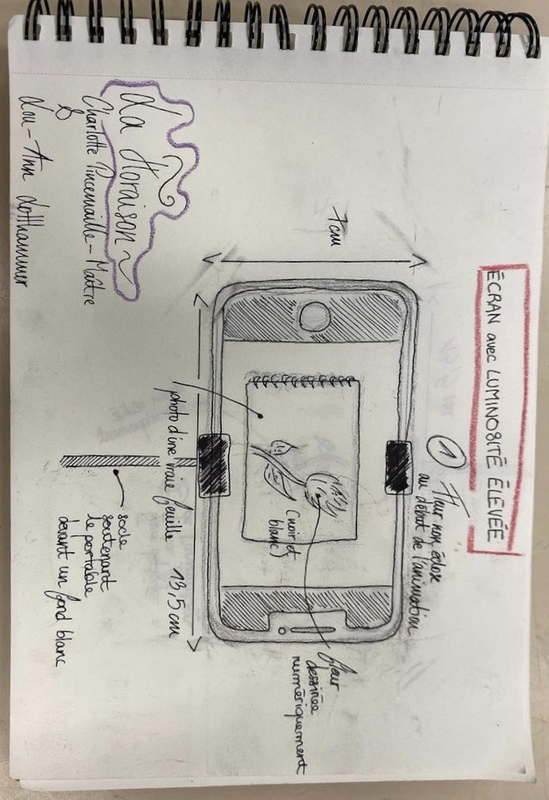 ÉCRAN avec LUMINOSITÉ ÉLEVÉE
① Fleur non éclose
au départ de l'animation
7cm
13,5 cm
photo d'une vraie feuille
(noir et
blanc)
fleur
dessinée
numériquement
socle
soutenant
le portable
devant un fond blanc
La floraison
Charlotte Pincemaille-Maître
&
Lou-Ann Lotthammer